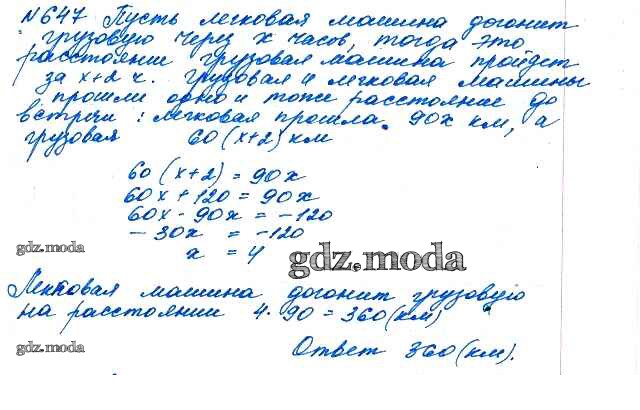 №647 Пусть легковая машина догонит
грузовую через х часов, тогда это
расстояние грузовая машина пройдет
за х+2 ч. грузовая и легковая машины
прошли одно и тоже расстояние до
встречи : легковая прошла 90х км, а
грузовая 60(х+2) км
60(х+2) = 90х
60х + 120 = 90х
60х - 90х = -120
- 30х = -120
gdz.moda
х = 4
gdz.moda
Легковая машина догонит грузовую
на расстоянии 4 · 90 = 360 (км)
gdz.moda
Ответ 360 (км).